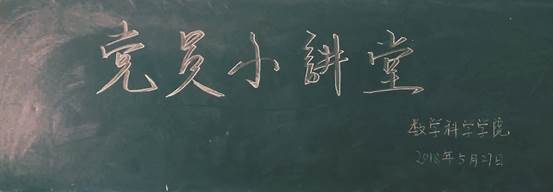 党员小讲堂
数学科学学院
2018年5月27日